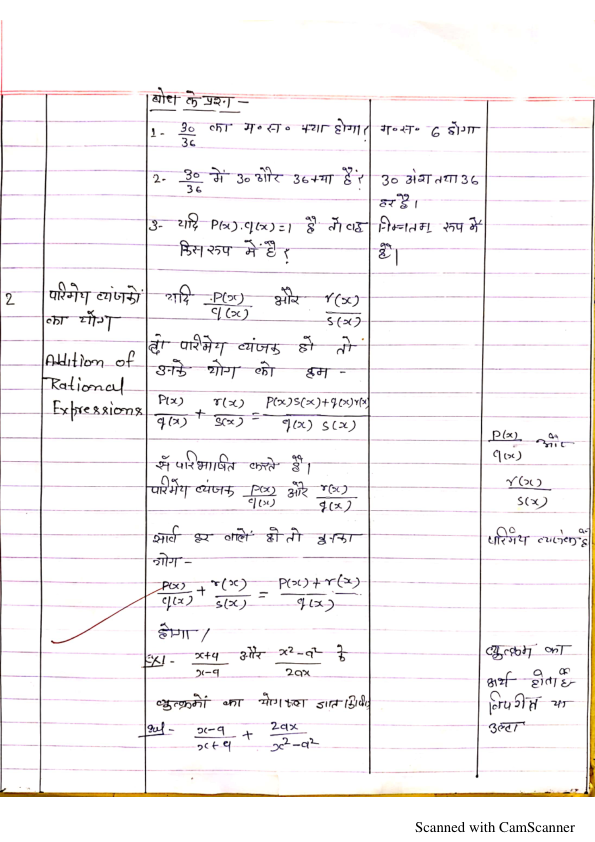 बोध के प्रश्न –
1- 30/36 का म०स० क्या होगा? म०स० 6 होगा
2- 30/36 में 30 और 36 क्या हैं? 30 अंश तथा 36
हर है।
3- यदि P(x).q(x)=1 है तो वह निम्नतम रूप में
किस रूप में है? है।
2 परिमेय व्यंजकों का योग
Addition of
Rational
Expressions
यदि P(x)/q(x) और r(x)/s(x)
दो परिमेय व्यंजक हो तो
उनके योग को हम –
P(x)/q(x) + r(x)/s(x) = P(x)s(x)+q(x)r(x)/q(x) s(x)
से परिभाषित करते हैं।
परिमेय व्यंजक P(x)/q(x) और r(x)/q(x)
हर वाले हो तो इनका
योग –
P(x)/q(x) + r(x)/s(x) = P(x)+r(x)/q(x)
होगा /
P(x)/q(x) और
r(x)/s(x)
परिमेय व्यंजक हैं
Ex1- x+a/x-a और x²-a²/2ax के
व्युत्क्रमों का योगफल ज्ञात कीजिए
हल- x-a/x+a + 2ax/x²-a²
व्युत्क्रम का
अर्थ होता है
विपरीत या
उल्टा
Scanned with CamScanner